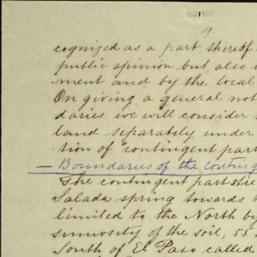 19
cognized as a part thereof
public opinion but also
ment and by the local
On giving a general not
daries we will consider
land separately under
tion of "contingent part
— Boundaries of the conting
The contingent part
Salada spring towards
limited to the North by
sinuosity of the soil, 55
South of El Paso called